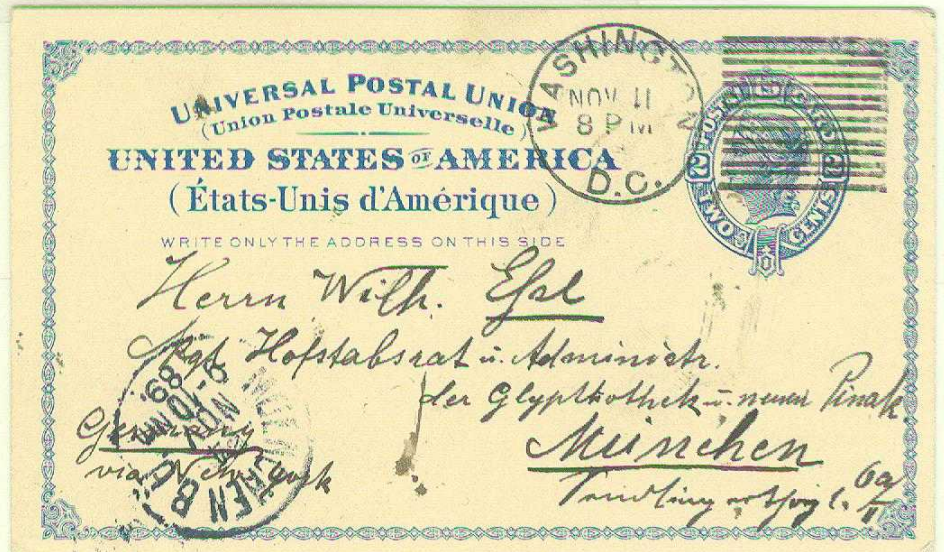 UNIVERSAL POSTAL UNION
(Union Postale Universelle)
UNITED STATES OF AMERICA
(États-Unis d'Amérique)
WRITE ONLY THE ADDRESS ON THIS SIDE
WASHINGTON
NOV 11
8 PM
D.C.
POSTAL CARD
2 2
TWO CENTS
Herrn Wilh.
Kgl. Hofstabsrat u. Administr.
der Glyptothek u. neuen Pinak
München
6a/II
Germany
via New York
MUENCHEN
NOV
89